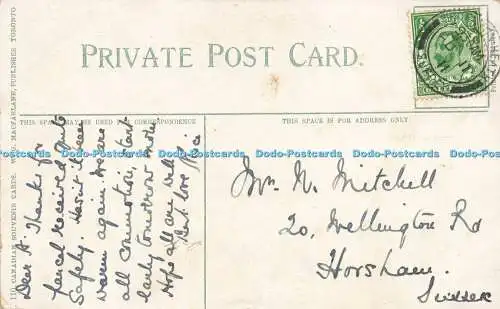 PRIVATE POST CARD.
THIS SPACE MAY BE USED FOR CORRESPONDENCE
THIS SPACE IS FOR ADDRESS ONLY
110, CANADIAN SOUVENIR CARDS. MACFARLANE, PUBLISHER TORONTO
Dear A Thanks for
parcel received quite
safely. Hasn't it been
warm again. We are
all commotion, start
early tomorrow morn
Hope all are well
Best love
Mrs. N. Mitchell
20, Wellington Rd
Horsham.
Sussex
Dodo-Postcards Dodo-Postcards Dodo-Postcards Dodo-Postcards Dodo-Postcards Dodo-Postcards